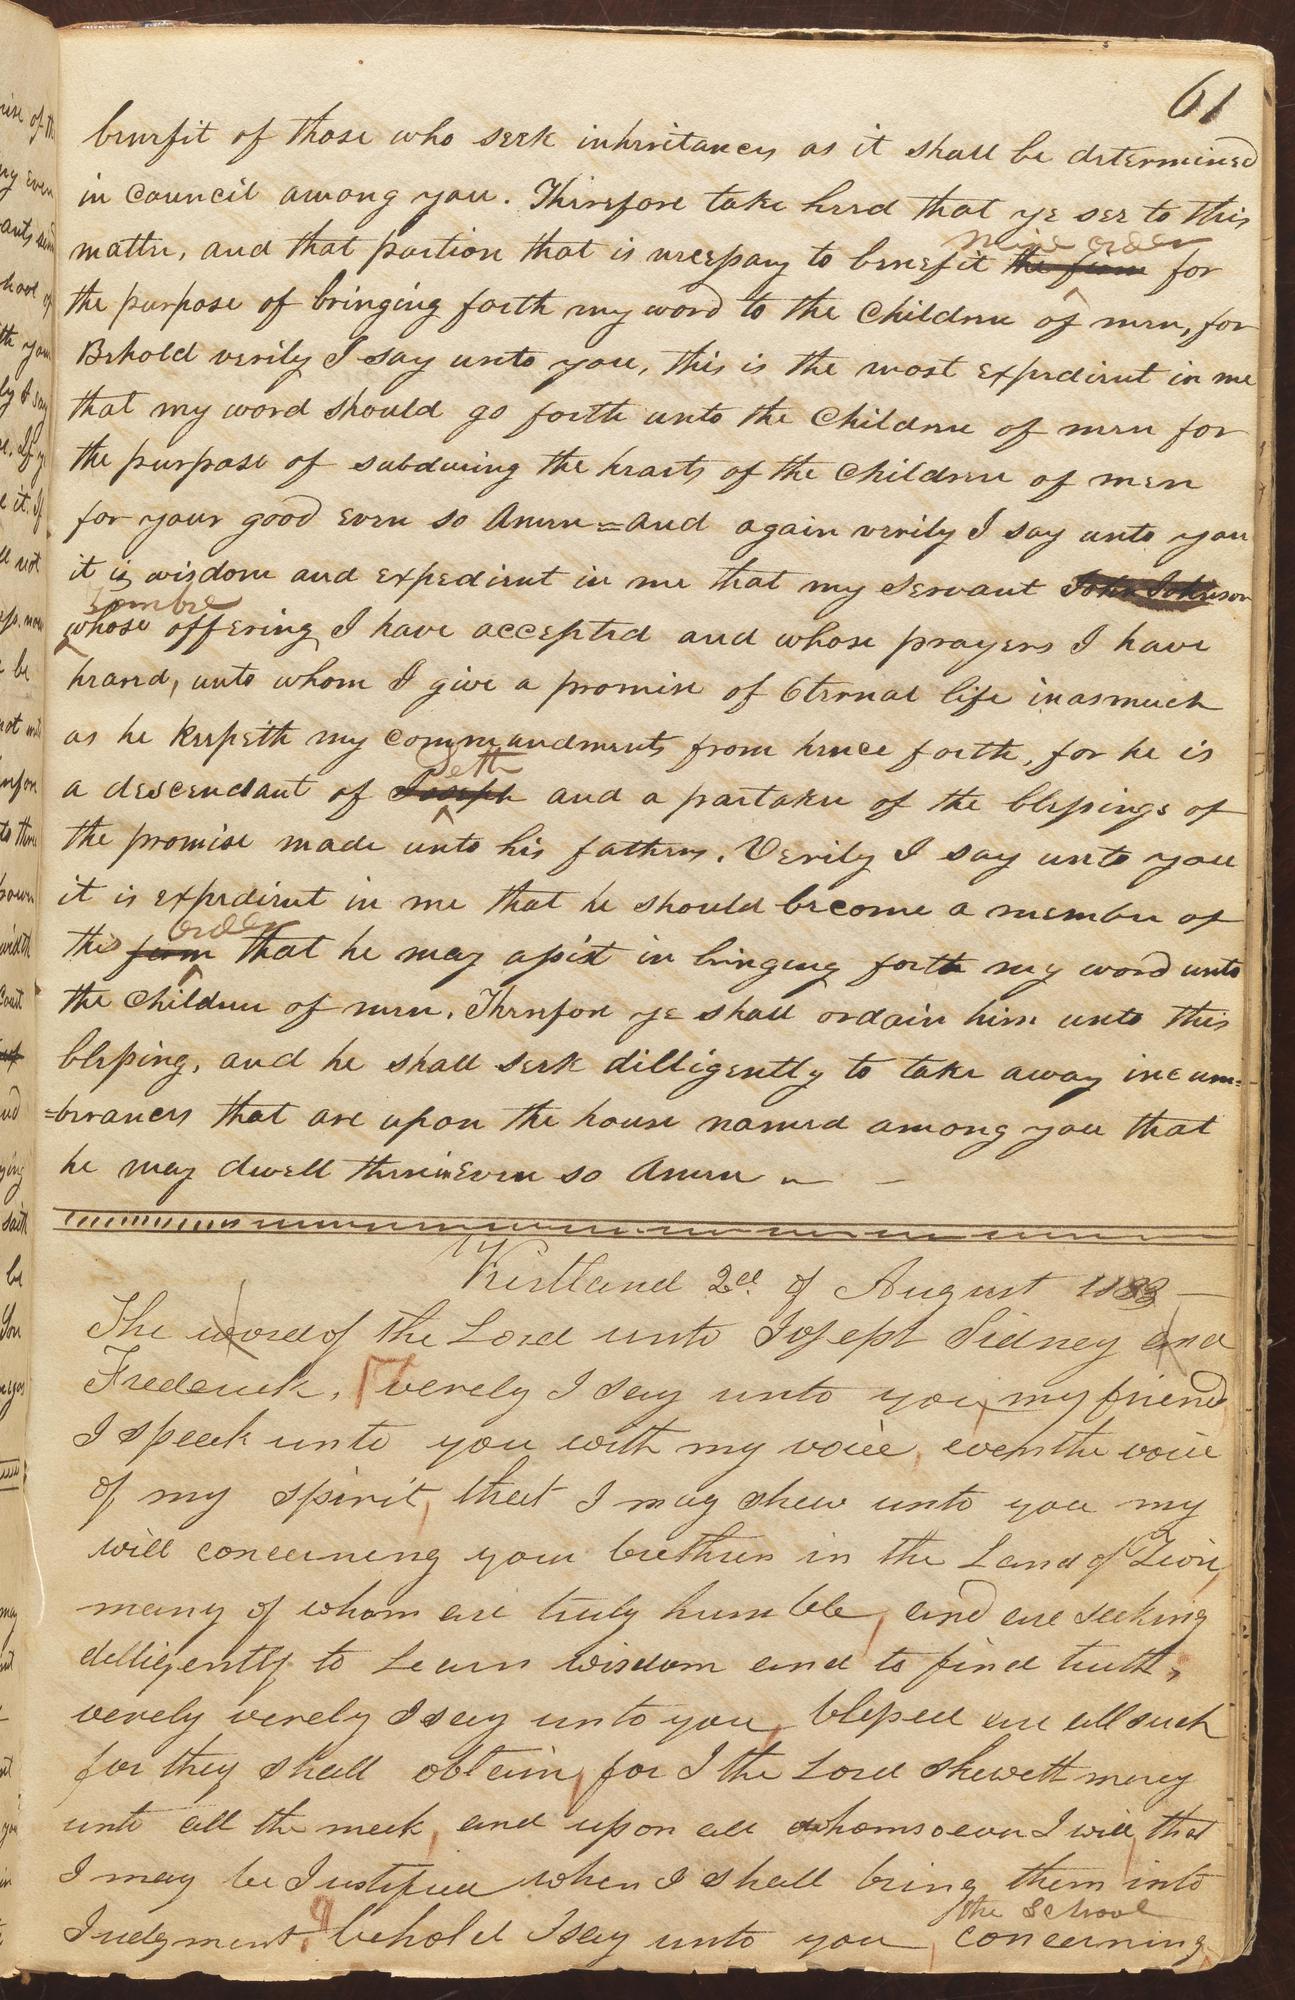 61
benefit of those who seek inheritances as it shall be determined
in council among you. Therefore take heed that ye see to this
mine order
matter, and that portion that is necessary to benefit the firm for
the purpose of bringing forth my word to the Children of men, for
Behold verily I say unto you, this is the most expedient in me
that my word should go forth unto the Children of men for
the purpose of subdueing the hearts of the Children of men
for your good even so Amen = And again verily I say unto you
it is wisdom and expedient in me that my servant John Johnson
zombre
whose offering I have accepted and whose prayers I have
heard, unto whom I give a promise of Eternal life inasmuch
as he keepeth my commandments from hence forth, for he is
Seth
a descendant of Joseph and a partaker of the blessings of
the promise made unto his fathers. Verily I say unto you
it is expedient in me that he should become a member of
order
the firm that he may assist in bringing forth my word unto
the Children of men. Therefore ye shall ordain him unto this
blessing, and he shall seek dilligently to take away incum=
=berances that are upon the house named among you that
he may dwell therein even so Amen
Kirtland 2d. of August 1833
The word of the Lord unto Joseph Sidney and
Frederick, verely I say unto you, my friend
I speek unto you with my voice, even the voice
of my spirit, that I may shew unto you my
will concerning your brethren in the Land of Zion,
many of whom are truly humble, and are seeking
dilligently to Learn wisdom and to find truth,
verely verely I say unto you, blessed are all such
for they shall obtain, for I the Lord sheweth mercy
unto all the meek, and upon all whomsoever I will, that
I may be Justified when I shall bring them into
the School
Judgment, behold I say unto you, concerning